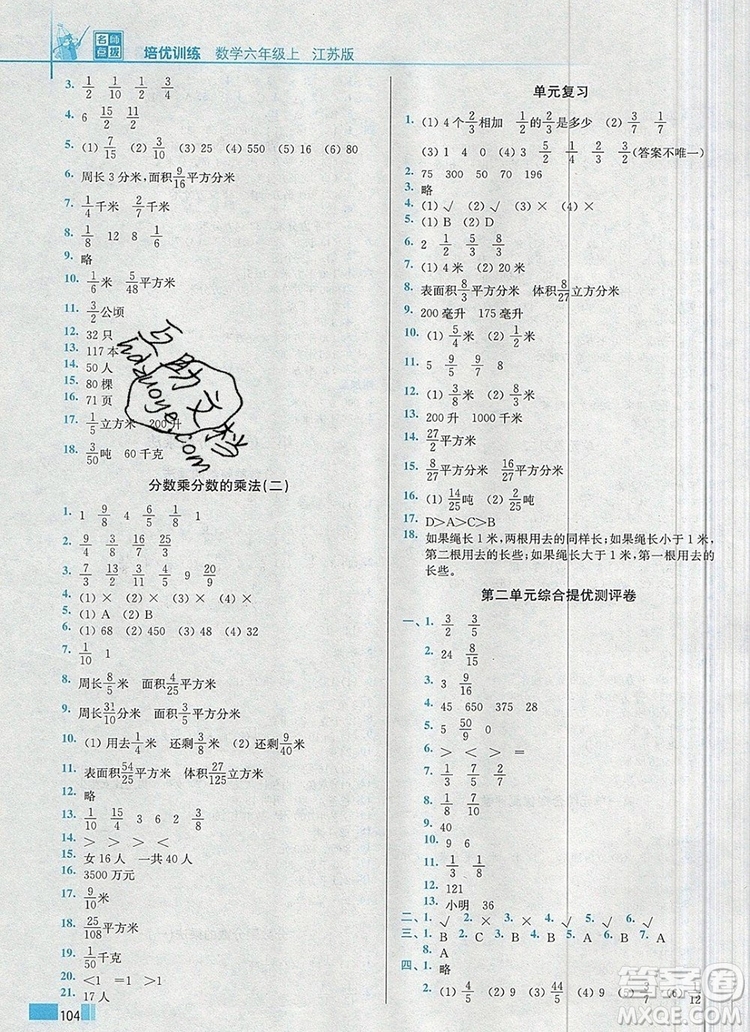 名师点拨 培优训练 数学六年级上 江苏版
3. 1/2 1/10 1/2
4. 6 15/2 11/2
5. (1) 7/15 (2) 3/10 (3) 25 (4) 550 (5) 16 (6) 80
6. 周长3分米,面积9/16平方分米
7. 1/4千米 2/7千米
8. 1/8 12 8 1/6
9. 略
10. 1/6米 5/48平方米
11. 3/2公顷
12. 32只
13. 117本
14. 50人
15. 80棵
16. 71页
17. 1/5立方米 200升
18. 3/50吨 60千克
分数乘分数的乘法(二)
1. 1 9/8 4 6/5 1/8 1
2. 2/9 4/9 3/8 4/7
3. 3/7 13/2 3/10 3/8 3/2
4. (1) × (2) × (3) × (4) ×
5. (1) A (2) B
6. (1) 68 (2) 450 (3) 48 (4) 68
7. 1/10 1
8. 周长8/5米 面积4/25平方米
9. 周长31/10分米 面积3/5平方分米
10. (1) 用去1/4米 还剩3/4米 (2) 还剩9/40米
11. 表面积54/25平方米 体积27/125立方米
12. 略
13. 1/10 15/4 3 6 2 3/8
14. > > > >
15. 女16人 一共40人
16. 3500万元
17. 9/10米
18. 25/108平方米
19. 1/50千克
20. 略
21. 17人
104
单元复习
1. (1) 4个2/3相加 1/2的2/3是多少 (2) 3/7 1/7
(3) 1 4 0 (4) 3 3/2 2/3 2/3(答案不唯一)
2. 75 300 50 70 196
3. 略
4. (1) √ (2) √ (3) × (4) ×
5. (1) B (2) D
6. 2 1/2 5/3 8/3
7. (1) 4米 (2) 20米
8. 表面积8/3平方分米 体积8/27立方分米
9. 200毫升 175毫升
10. (1) 5/4米 (2) 1/2米
11. 5 9/5 9/7 8
12. (1) 3/8米 (2) 3/10米
13. 200升 1000千米
14. 27/2平方米
15. 8/27平方分米 16/9平方分米
16. (1) 14/25吨 (2) 9/25吨
17. D>A>C>B
18. 如果绳长1米,两根用去的同样长;如果绳长小于1米,
第二根用去的长些;如果绳长大于1米,第一根用去的
长些。
第二单元综合提优测评卷
一、1. 3/2 3/5
2. 24 8/15
3. 3 9/16
4. 45 650 375 28
5. 5 50/9 0
6. > < > =
7. 1/20 3/5 7/2
8. 1/8 7/10
9. 40
10. 9
11. 1/3 1/3
12. 121
13. 小明 36
二、1. √ 2. × 3. × 4. √ 5. √ 6. √ 7. √
三、1. B 2. B 3. C 4. C 5. A 6. A 7. B
8. A
四、1. 略
2. (1) 9/5 (2) 9 (3) 44/5 (4) 9 (5) /7 (6) 1/12
互助文档
hdzuoye.com
答案圈
MXQE.COM